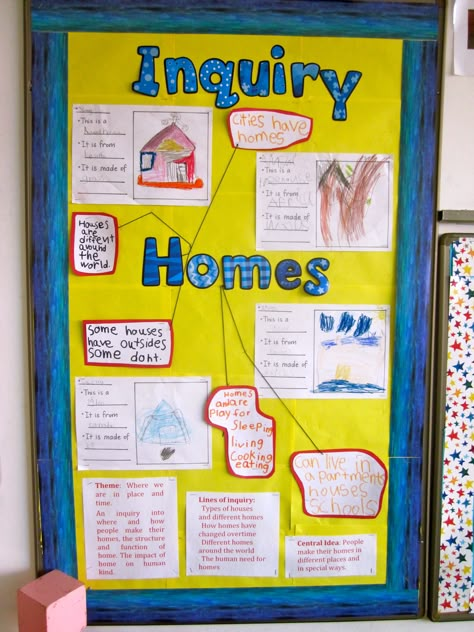 Inquiry
• This is a
• It is from
• It is made of
Cities have
homes
• This is a
• It is from
• It is made of
Houses
are
diffent
around
the
world.
Homes
Some houses
have outsides
some dont.
• This is a
• It is from
• It is made of
• This is a
• It is from
• It is made of
Homes
and are
Play for
Sleeping
living
Cooking
eating
Can live in
a partments
houses
Schools
Theme: Where we
are in place and
time.
An inquiry into
where and how
people make their
homes, the structure
and function of
home. The impact of
home on human
kind.
Lines of inquiry:
Types of houses
and different homes
How homes have
changed overtime
Different homes
around the world
The human need for
homes
Central Idea: People
make their homes in
different places and
in special ways.